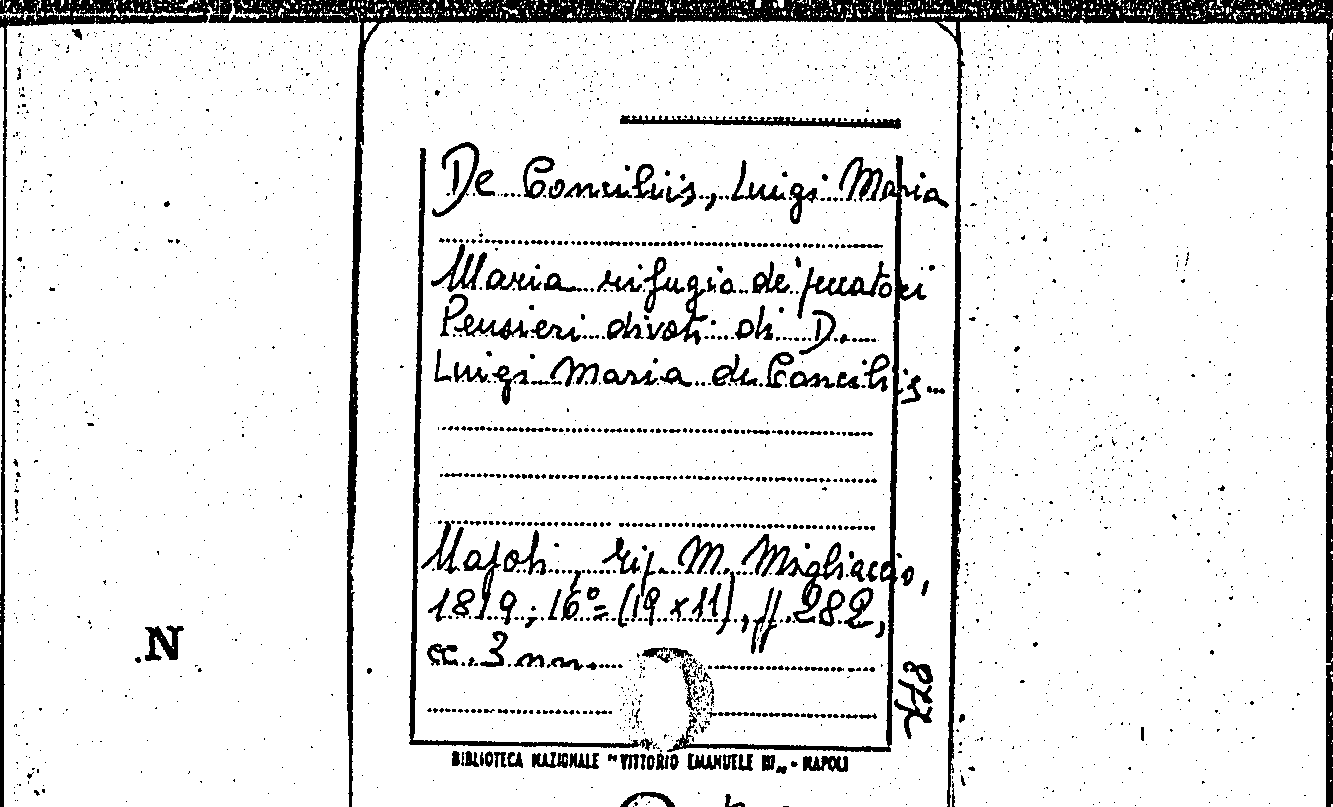 De Conciliis, Luigi Maria
Maria rifugio de' peccatori
Pensieri divoti di D.
Luigi Maria de Conciliis...
Napoli, tip. M. Migliaccio,
1819; 16º (19 x 11), pp. 282,
cc. 3 nn.
N
BIBLIOTECA NAZIONALE "VITTORIO EMANUELE III„ - NAPOLI